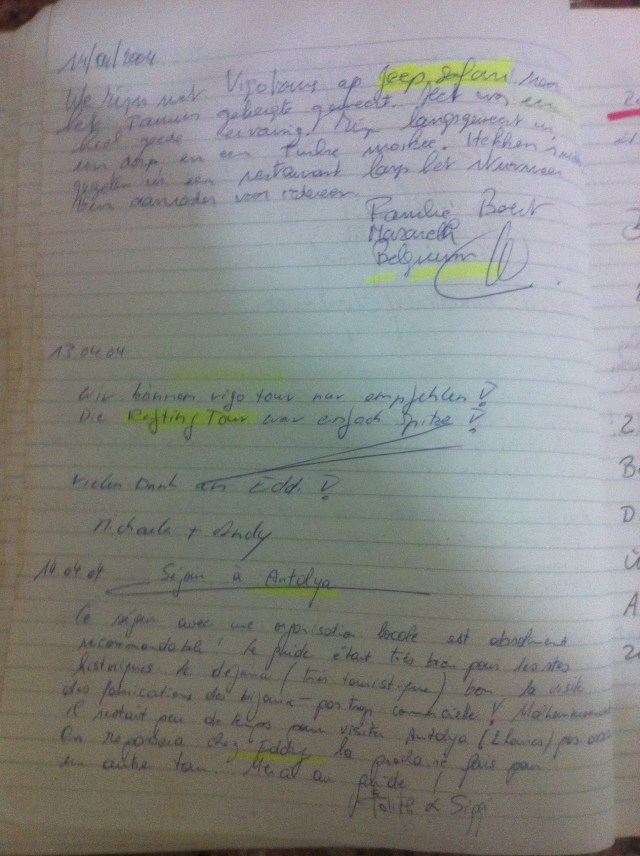 14/04/2004
We zijn met Vigotours op Jeep Safari naar
het Taurus gebergte geweest. Het was een
heel goede ervaring. Zijn langsgeweest in
een dorp en een Turkse moskee. Hebben
gegeten in een restaurant langs het
Een aanrader voor iedereen
Familie
Nazareth
Belgium
13.04.04
Wir können vigo tour nur empfehlen !
Die Rafting Tour war einfach Spitze !
Vielen Dank an Eddi !
Michaela + Andy
14.04.04 Séjour à Antalya
Ce séjour avec une organisation locale est absolument
recommandable ! Le guide était très bien pour les sites
historiques le déjeuner (très touristique) bon la visite
des fabrications des bijoux - pas trop commerciale ! Malheureusement
il restait peu de temps pour visiter Antalya (2 heures) pas assez
On repassera chez Eddy la prochaine fois pour
un autre tour. Merci au guide !
& Siggi